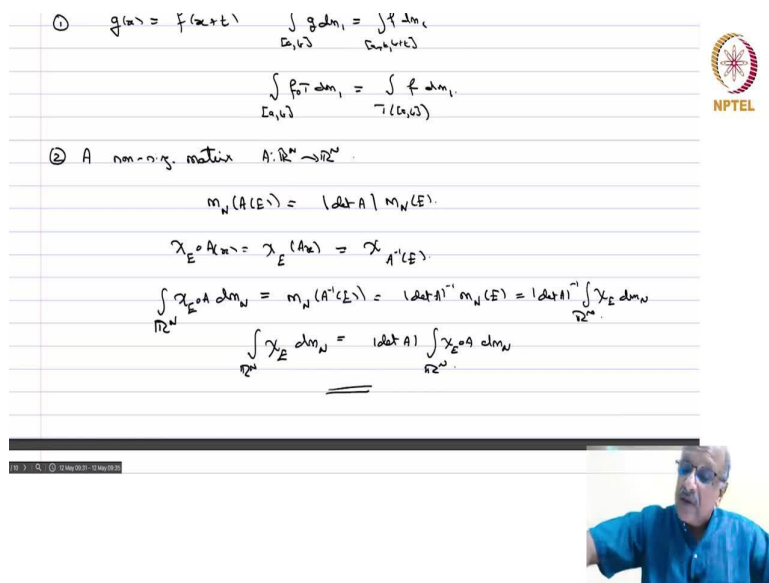 ① g(x) = f(x+t) ∫_[a,b] g dm₁ = ∫_[a+t,b+t] f dm₁
∫_[a,b] f∘T dm₁ = ∫_T([a,b]) f dm₁.
② A non-sig. matrix A: ℝᴺ → ℝᴺ.
m_N(A(E)) = |det A| m_N(E).
χ_E∘A(x) = χ_E(Ax) = χ_A⁻¹(E).
∫_ℝᴺ χ_E∘A dm_N = m_N(A⁻¹(E)) = |det A|⁻¹ m_N(E) = |det A|⁻¹ ∫_ℝᴺ χ_E dm_N
∫_ℝᴺ χ_E dm_N = |det A| ∫_ℝᴺ χ_E∘A dm_N
NPTEL
/10 12 May 09:31 - 12 May 09:35